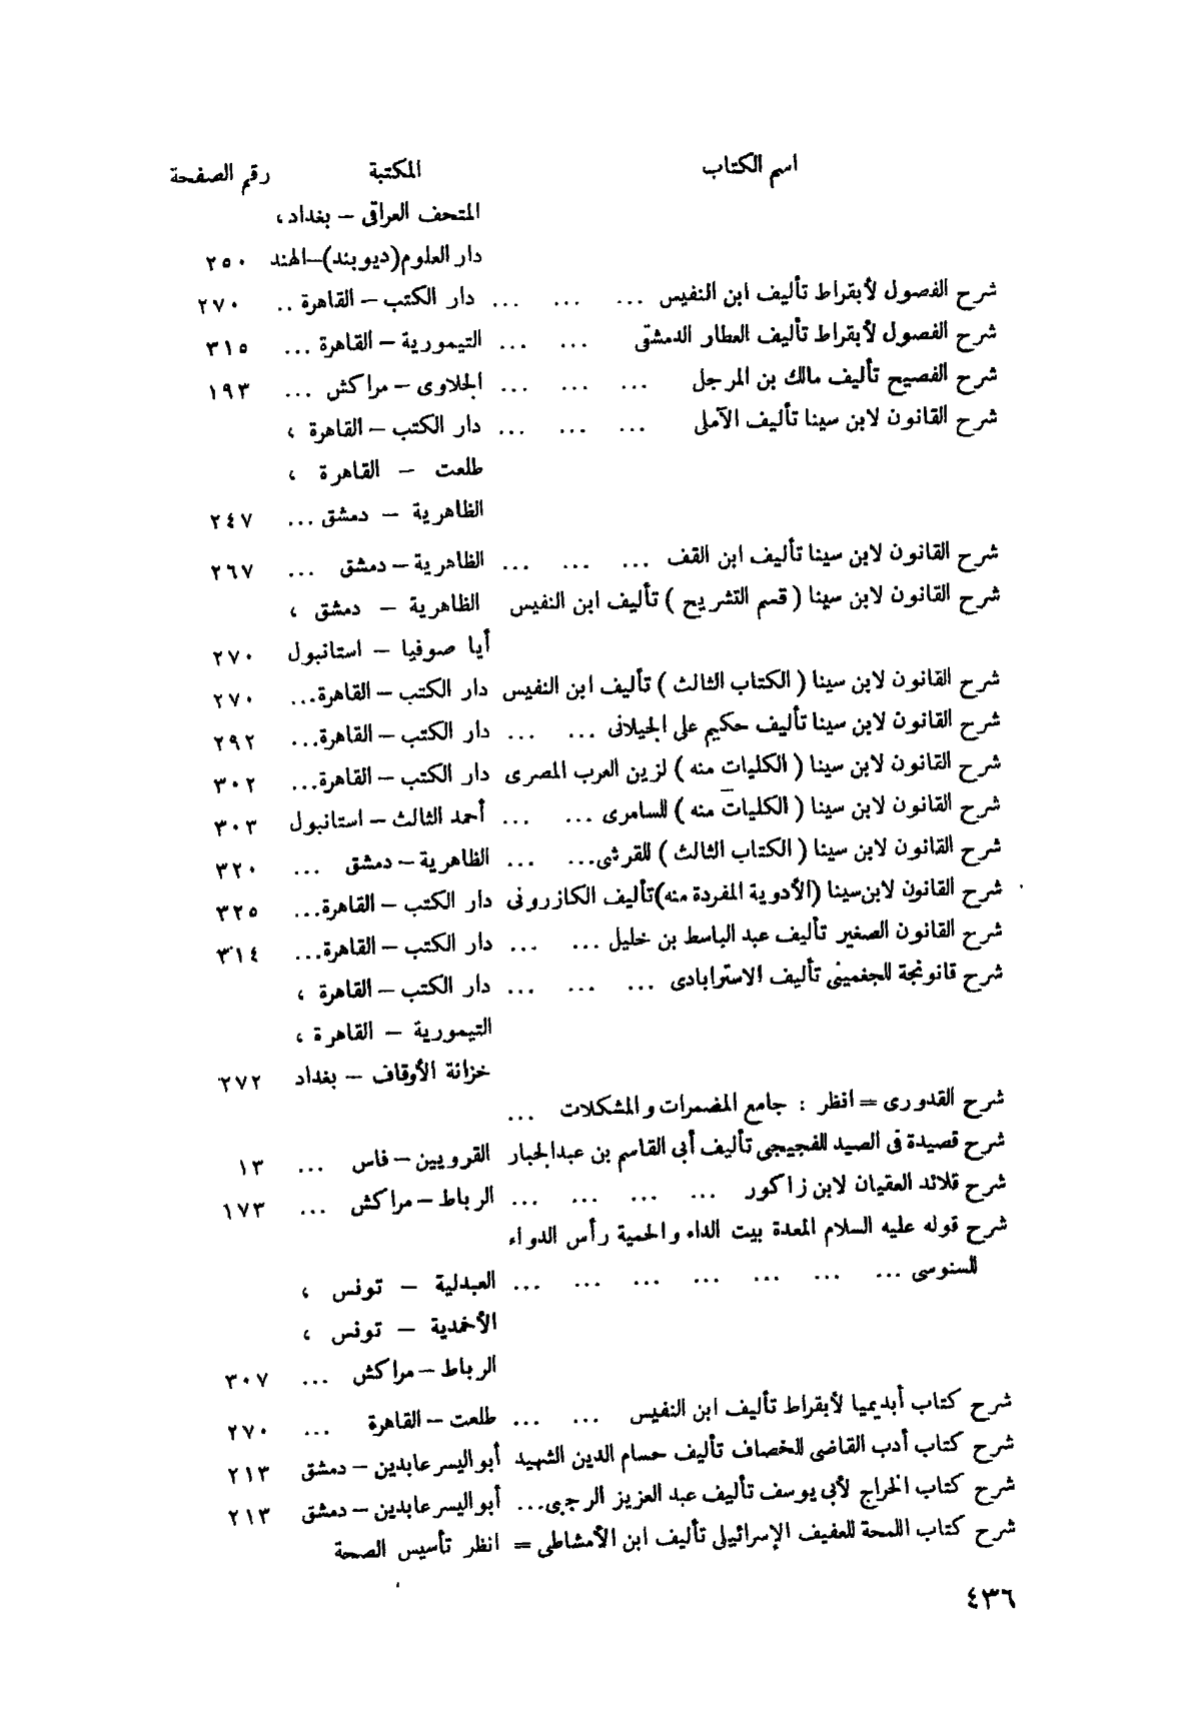 اسم الكتاب المكتبة رقم الصفحة
المتحف العراقى – بغداد ،
دار العلوم(ديوبند)–الهند ٢٥٠
شرح الفصول لأبقراط تأليف ابن النفيس ... ... ... دار الكتب – القاهرة .. ٢٧٠
شرح الفصول لأبقراط تأليف العطار الدمشقى ... ... التيمورية – القاهرة ... ٣١٥
شرح الفصيح تأليف مالك بن المرجل ... ... ... الجلاوى – مراكش ... ١٩٣
شرح القانون لابن سينا تأليف الآملى ... ... ... دار الكتب – القاهرة ،
طلعت – القاهرة ،
الظاهرية – دمشق ... ٢٤٧
شرح القانون لابن سينا تأليف ابن القف ... ... ... الظاهرية – دمشق ... ٢٦٧
شرح القانون لابن سينا ( قسم التشريح ) تأليف ابن النفيس الظاهرية – دمشق ،
أيا صوفيا – استانبول ٢٧٠
شرح القانون لابن سينا ( الكتاب الثالث ) تأليف ابن النفيس دار الكتب – القاهرة... ٢٧٠
شرح القانون لابن سينا تأليف حكيم على الجيلانى ... ... ... دار الكتب – القاهرة... ٢٩٢
شرح القانون لابن سينا ( الكليات منه ) لزين العرب المصرى دار الكتب – القاهرة... ٣٠٢
شرح القانون لابن سينا ( الكليات منه ) للسامرى ... ... ... أحمد الثالث – استانبول ٣٠٣
شرح القانون لابن سينا ( الكتاب الثالث ) للقرشى... ... ... الظاهرية – دمشق ... ٣٢٠
شرح القانون لابن سينا (الأدوية المفردة منه)تأليف الكازرونى دار الكتب – القاهرة... ٣٢٥
شرح القانون الصغير تأليف عبد الباسط بن خليل ... ... ... دار الكتب – القاهرة... ٣١٤
شرح قانونجة للجغمينى تأليف الاسترابادى ... ... ... دار الكتب – القاهرة ،
التيمورية – القاهرة ،
خزانة الأوقاف – بغداد ٢٧٢
شرح القدورى = انظر : جامع المضمرات والمشكلات ...
شرح قصيدة فى الصيد للفجيجى تأليف أبى القاسم بن عبدالجبار القرويين – فاس ... ١٣
شرح قلائد العقيان لابن زاكور ... ... ... ... الرباط – مراكش ... ١٧٣
شرح قوله عليه السلام المعدة بيت الداء والحمية رأس الدواء
للسنوسى ... ... ... ... ... ... ... العبدلية – تونس ،
الأحمدية – تونس ،
الرباط – مراكش ... ٣٠٧
شرح كتاب أبديميا لأبقراط تأليف ابن النفيس ... ... ... طلعت – القاهرة ... ٢٧٠
شرح كتاب أدب القاضى للخصاف تأليف حسام الدين الشهيد أبو اليسر عابدين – دمشق ٢١٣
شرح كتاب الخراج لأبى يوسف تأليف عبد العزيز الرجبى... أبو اليسر عابدين – دمشق ٢١٣
شرح كتاب اللمحة للعفيف الإسرائيلى تأليف ابن الأمشاطى = انظر تأسيس الصحة
٤٣٦